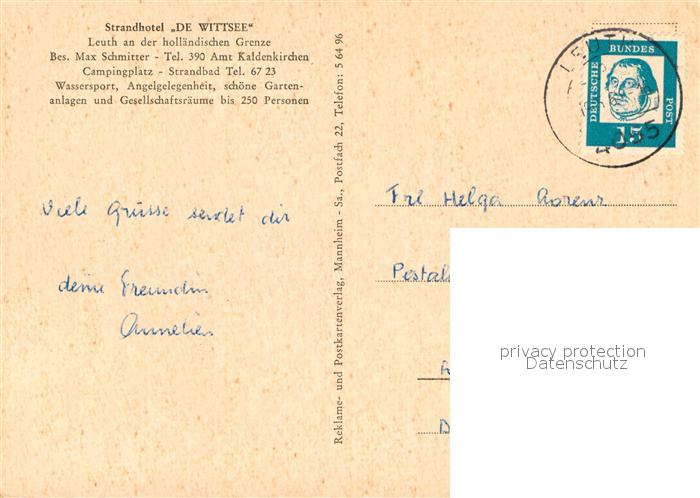 Strandhotel „DE WITTSEE“
Leuth an der holländischen Grenze
Bes. Max Schmitter - Tel. 390 Amt Kaldenkirchen
Campingplatz - Strandbad Tel. 67 23
Wassersport, Angelgelegenheit, schöne Garten-
anlagen und Gesellschaftsräume bis 250 Personen
Viele Grüsse sendet dir
deine Freundin
Annelien
Reklame- und Postkartenverlag, Mannheim - Sa., Postfach 22, Telefon: 5 64 96
LEUTH
4055
DEUTSCHE BUNDES POST
15
Frl Helga
Postal
privacy protection
Datenschutz